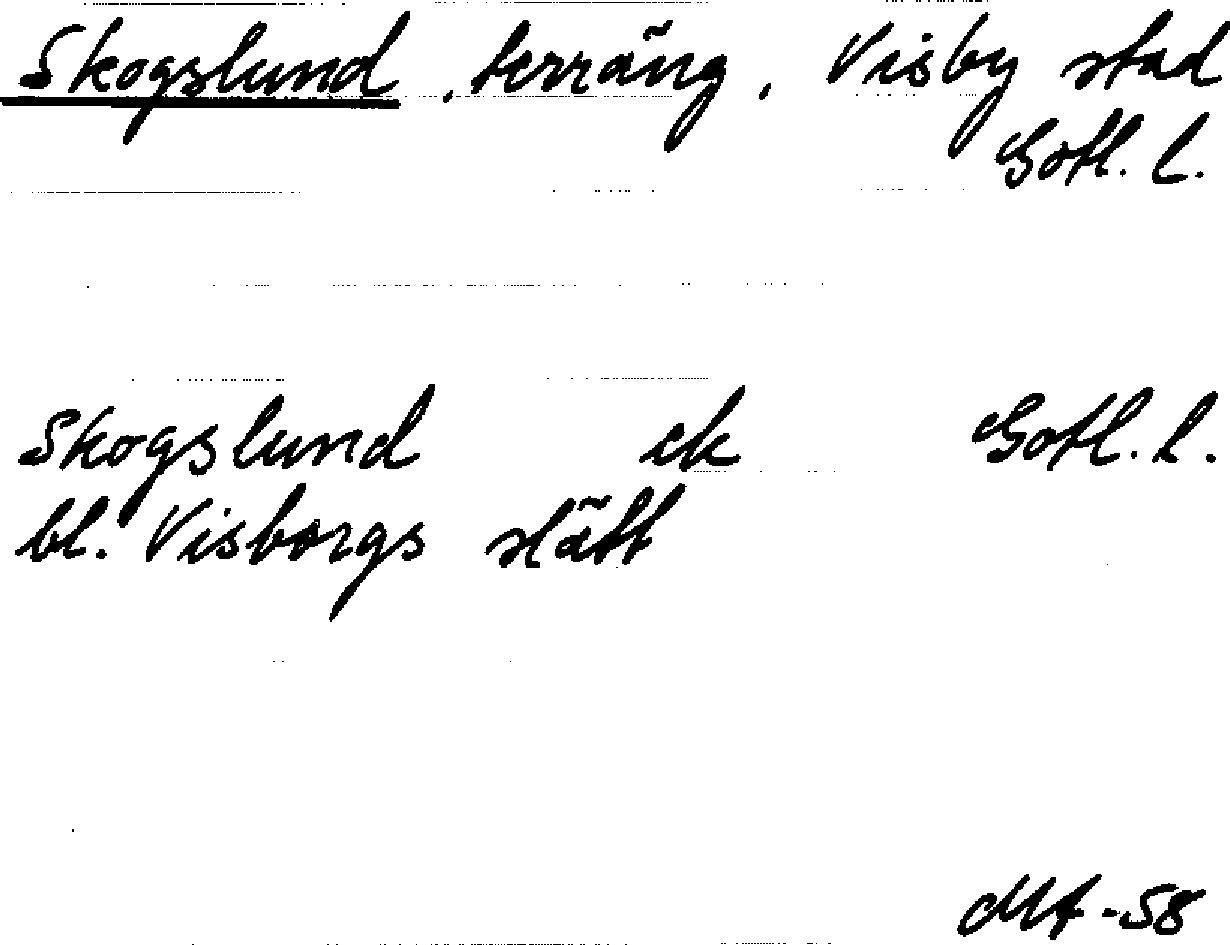 Skogslund, terräng, Visby stad
Gotl. l.
Skogslund ek Gotl. l.
bl. Visborgs slätt
MA-58